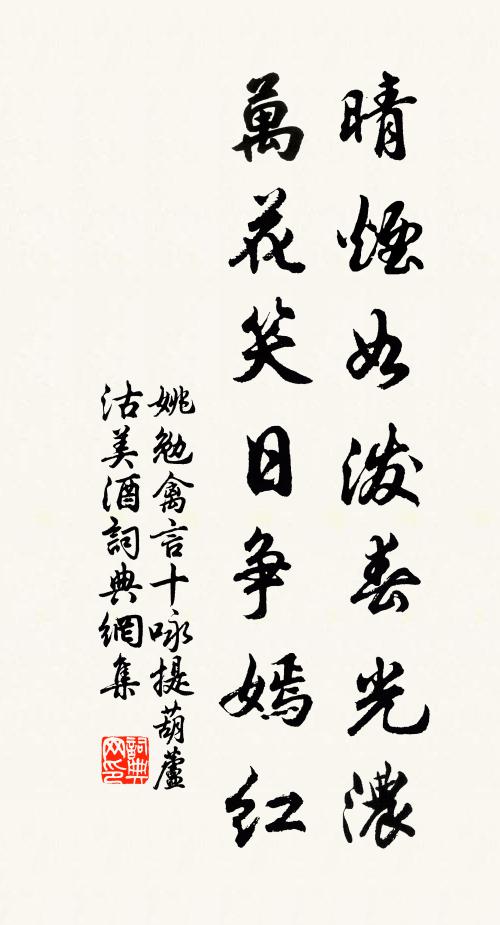 晴煙如潑春光濃
萬花笑日爭嫣紅
姚勉禽言十咏提葫蘆
沽美酒詞典網集
詞典網印